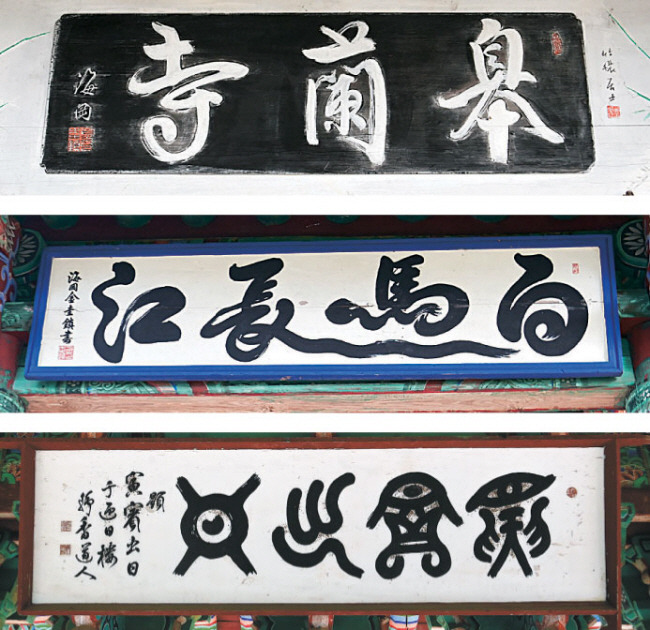 竹儂居士
皐蘭寺
海岡
白馬長江
海岡金圭鎭書
寅賓出日
題
寅賓出日
于迎日樓
靜香道人